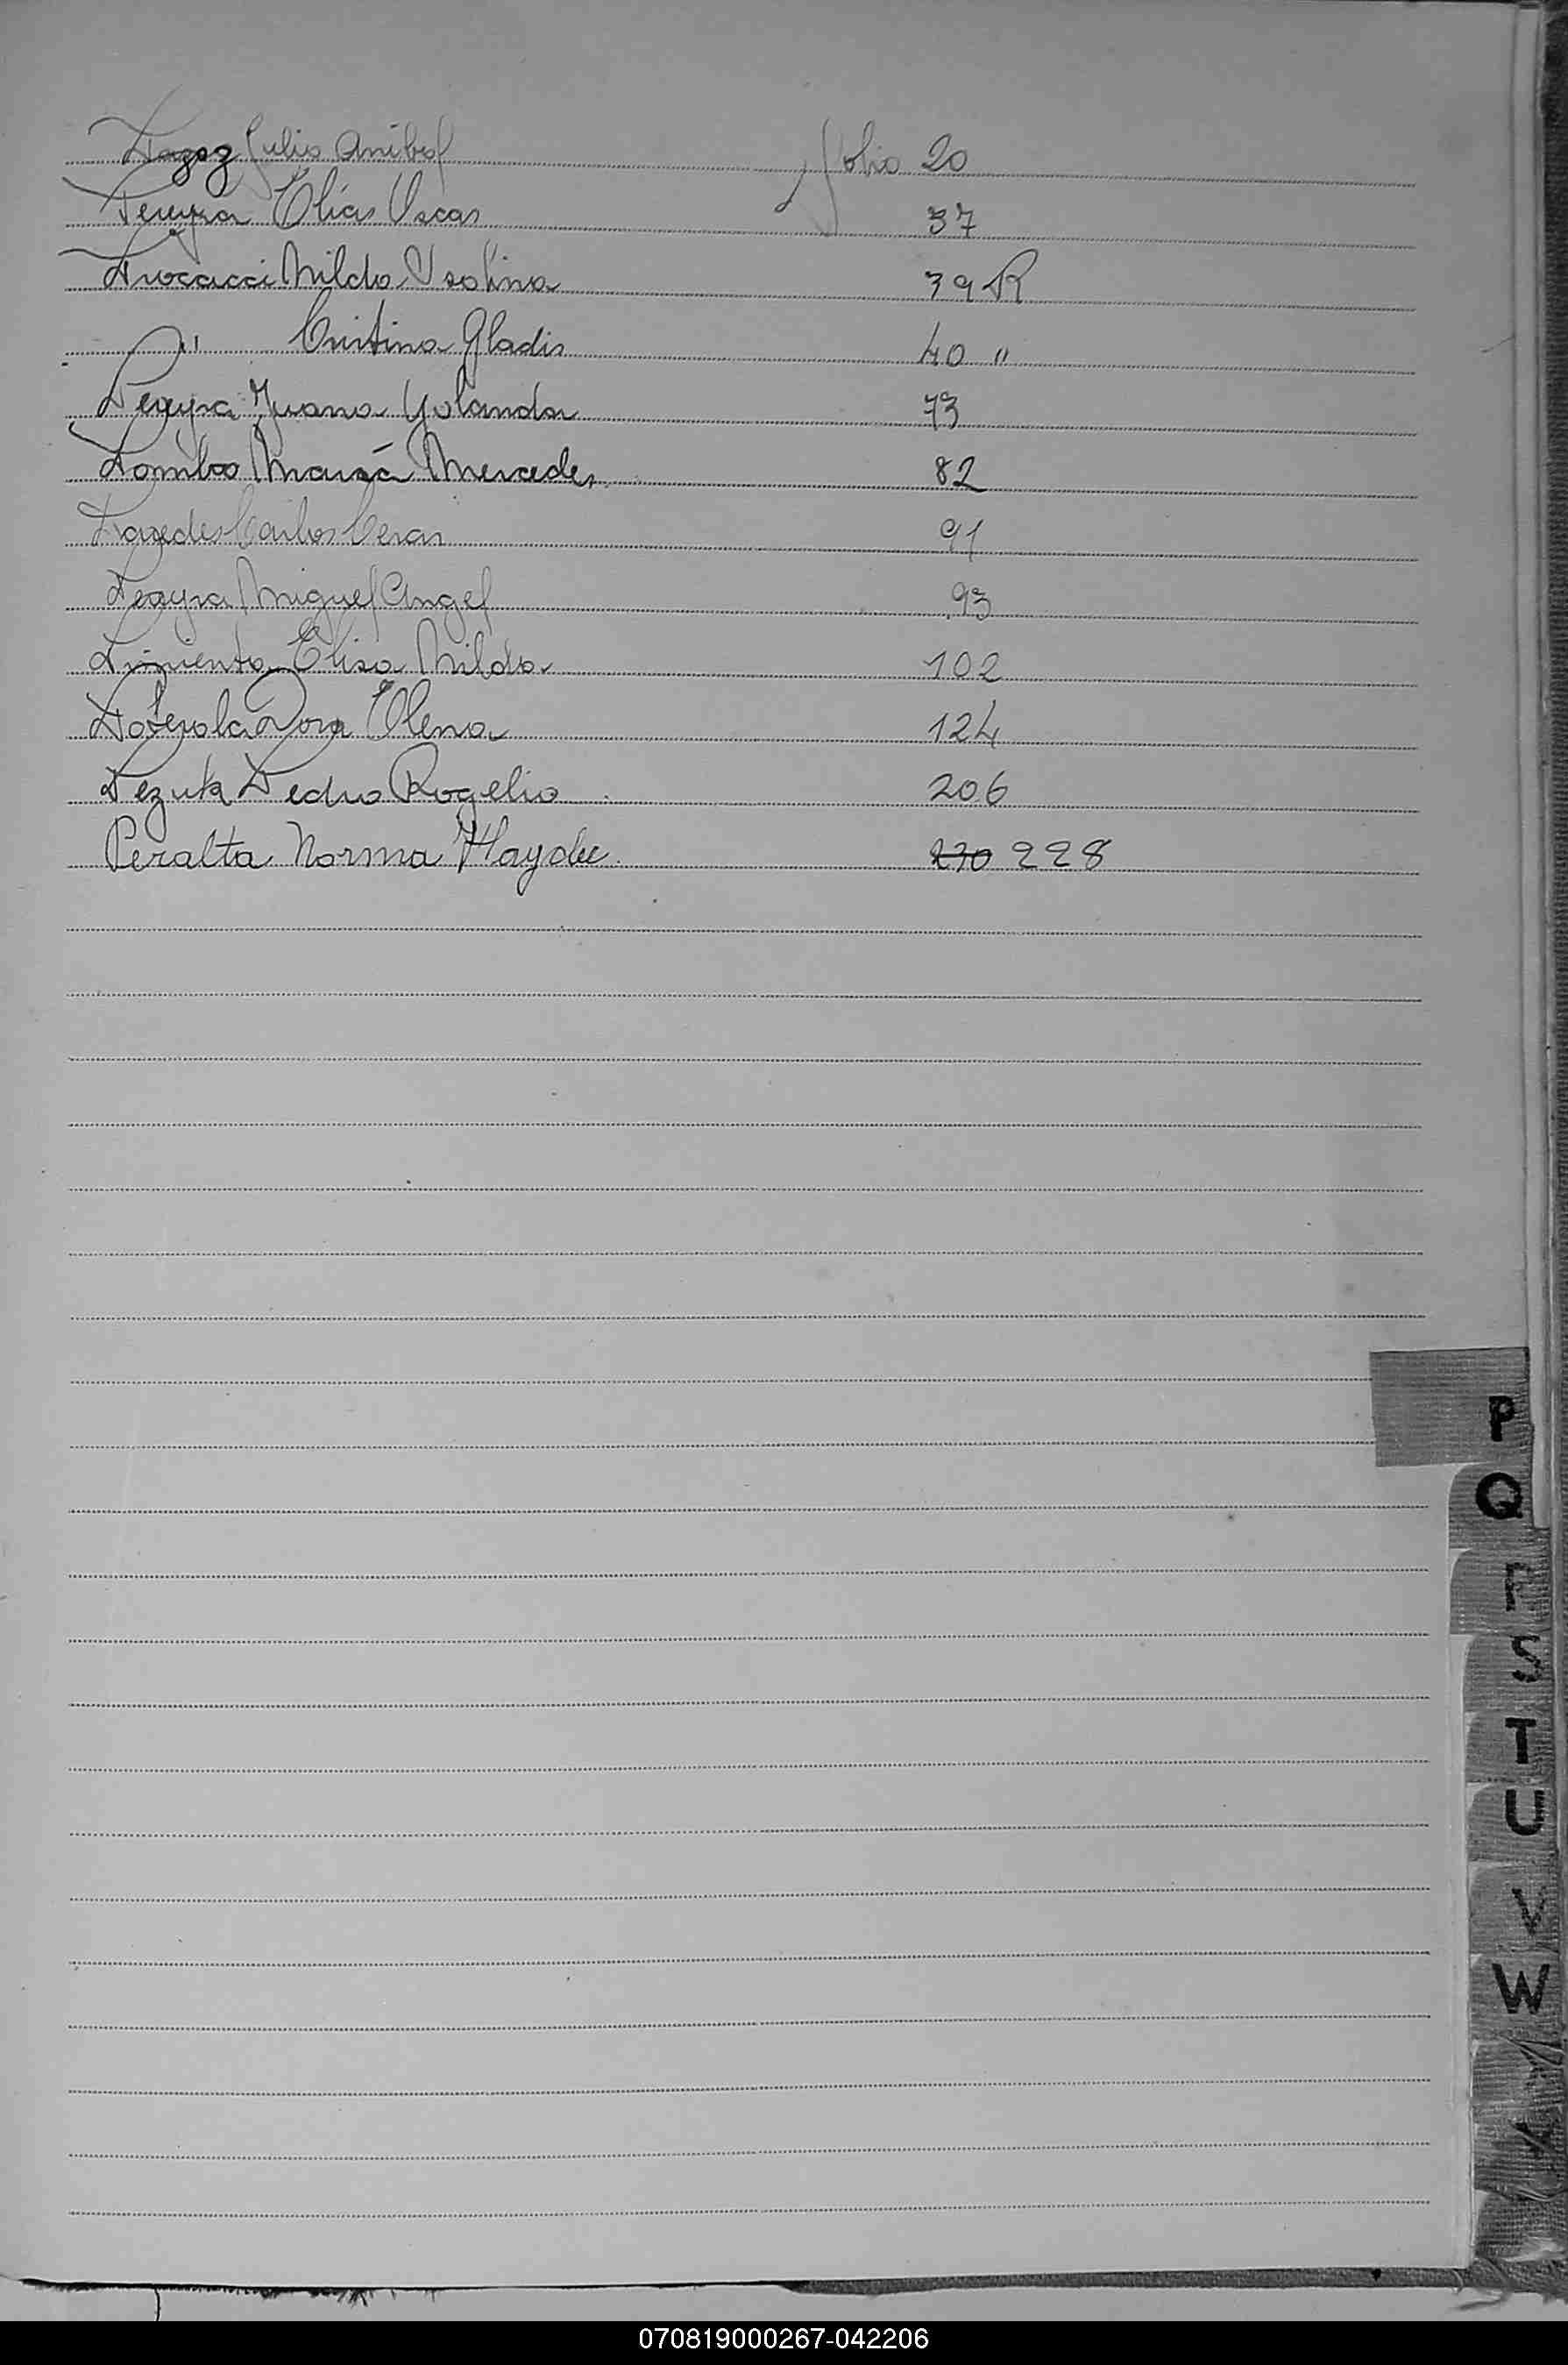 Pagoz Julio Anibal Folio 20
Pereyra Elías Oscar 37
Procacci Nilda Isolina 39 R
" Cristina Gladis 40 "
Pereyra Juana Yolanda 73
Pombo María Mercedes 82
Paredes Carlos Cesar 91
Pereyra Miguel Angel 93
Pimienta Elisa Nilda 102
Poterola Dora Elena 124
Pezuk Pedro Rogelio 206
Peralta Norma Haydee 230 228
P
Q
R
S
T
U
V
W
070819000267-042206